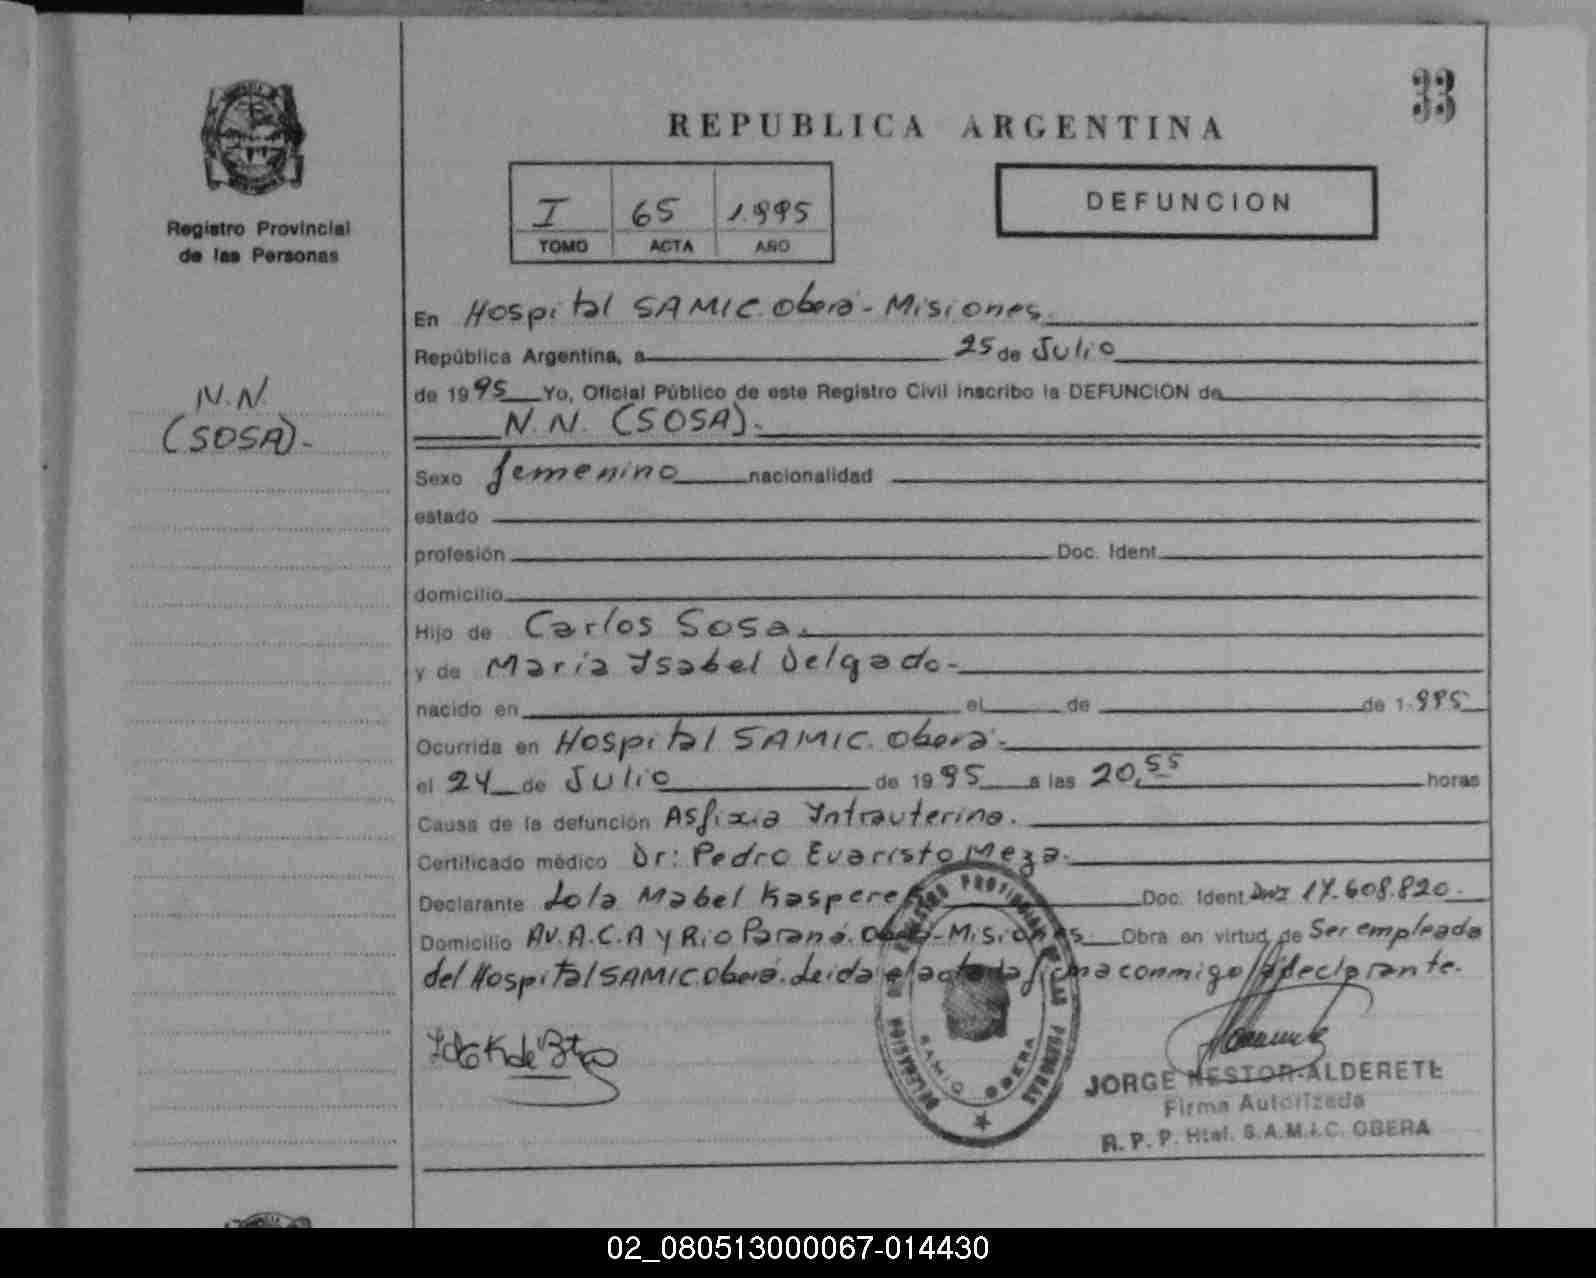 33
REPUBLICA ARGENTINA
Registro Provincial
de las Personas
I 65 1.995
TOMO ACTA AÑO
DEFUNCION
N.N.
(SOSA).-
En Hospital SAMIC. Oberá - Misiones.
República Argentina, a 25 de Julio
de 1995 Yo, Oficial Público de este Registro Civil inscribo la DEFUNCION de
N. N. (SOSA).-
Sexo femenino nacionalidad
estado
profesión Doc. Ident.
domicilio
Hijo de Carlos Sosa.
y de María Ysabel Delgado.-
nacido en el de de 1.995
Ocurrida en Hospital SAMIC. Oberá.-
el 24 de Julio de 1995 a las 20,55 horas
Causa de la defunción Asfixia Yntrauterina.
Certificado médico Dr: Pedro Evaristo Meza.
Declarante Lola Mabel Doc. Ident. 17.608.820.-
Domicilio AV. A.C.A y Rio Paraná. Oberá - Misiones Obra en virtud de Ser empleada
del Hospital SAMIC. Oberá. Leida el acta la firma conmigo la declarante.
DELEGACION REGISTRO PROVINCIAL DE LAS PERSONAS
SAMIC OBERA
JORGE NESTOR ALDERETE
Firma Autorizada
R. P. P. Htal. S.A.M.I.C. OBERA
02_080513000067-014430